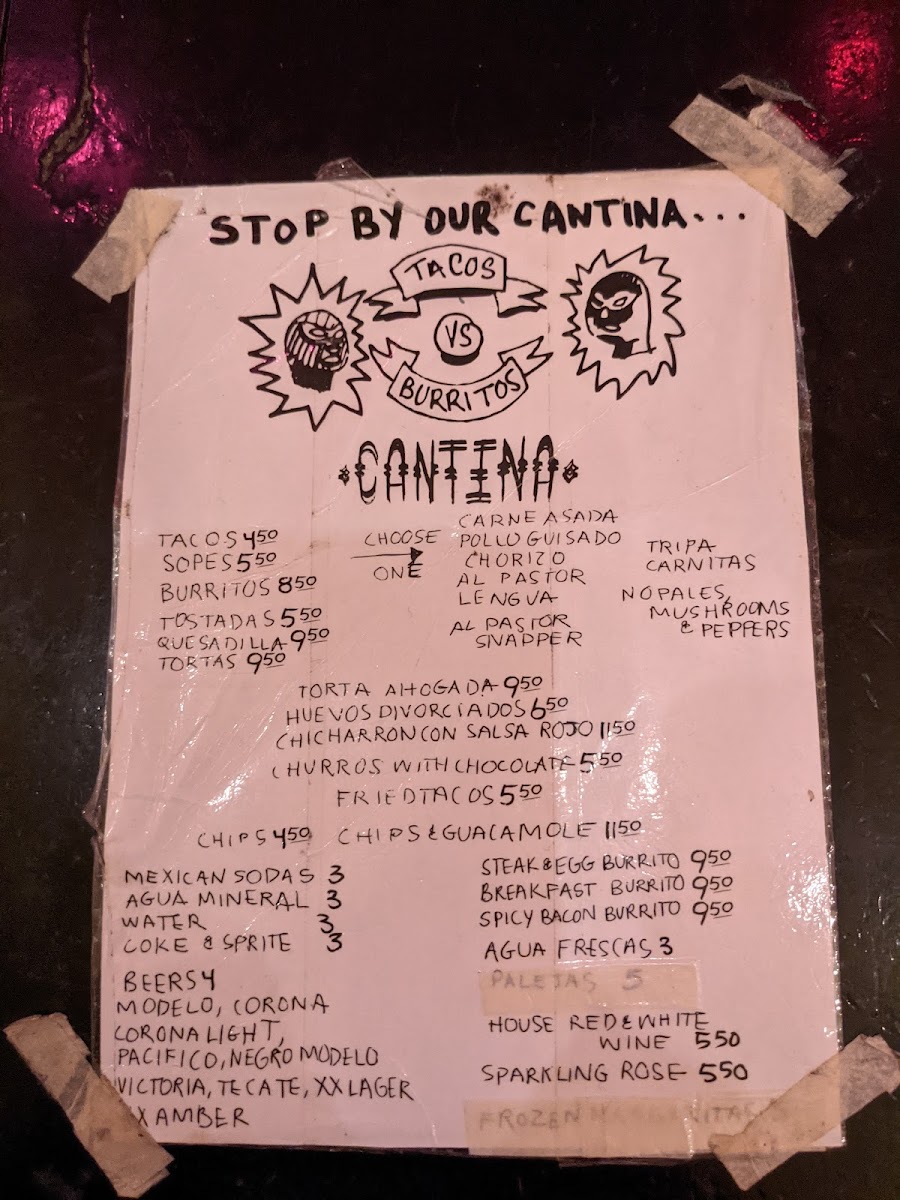 STOP BY OUR CANTINA...
TACOS
VS
BURRITOS
CANTINA
TACOS 4.50
SOPES 5.50
BURRITOS 8.50
TOSTADAS 5.50
QUESADILLA 9.50
TORTAS 9.50
CHOOSE
ONE
CARNE ASADA
POLLO GUISADO
CHORIZO
AL PASTOR
LENGUA
AL PASTOR
SNAPPER
TRIPA
CARNITAS
NOPALES,
MUSHROOMS
& PEPPERS
TORTA AHOGADA 9.50
HUEVOS DIVORCIADOS 6.50
CHICHARRON CON SALSA ROJO 11.50
CHURROS WITH CHOCOLATE 5.50
FRIED TACOS 5.50
CHIPS 4.50 CHIPS & GUACAMOLE 11.50
MEXICAN SODAS 3
AGUA MINERAL 3
WATER 3
COKE & SPRITE 3
BEERS 4
MODELO, CORONA
CORONA LIGHT,
PACIFICO, NEGRO MODELO
VICTORIA, TECATE, XX LAGER
X AMBER
STEAK & EGG BURRITO 9.50
BREAKFAST BURRITO 9.50
SPICY BACON BURRITO 9.50
AGUA FRESCAS 3
PALETAS 5
HOUSE RED & WHITE
WINE 5.50
SPARKLING ROSE 5.50
FROZEN